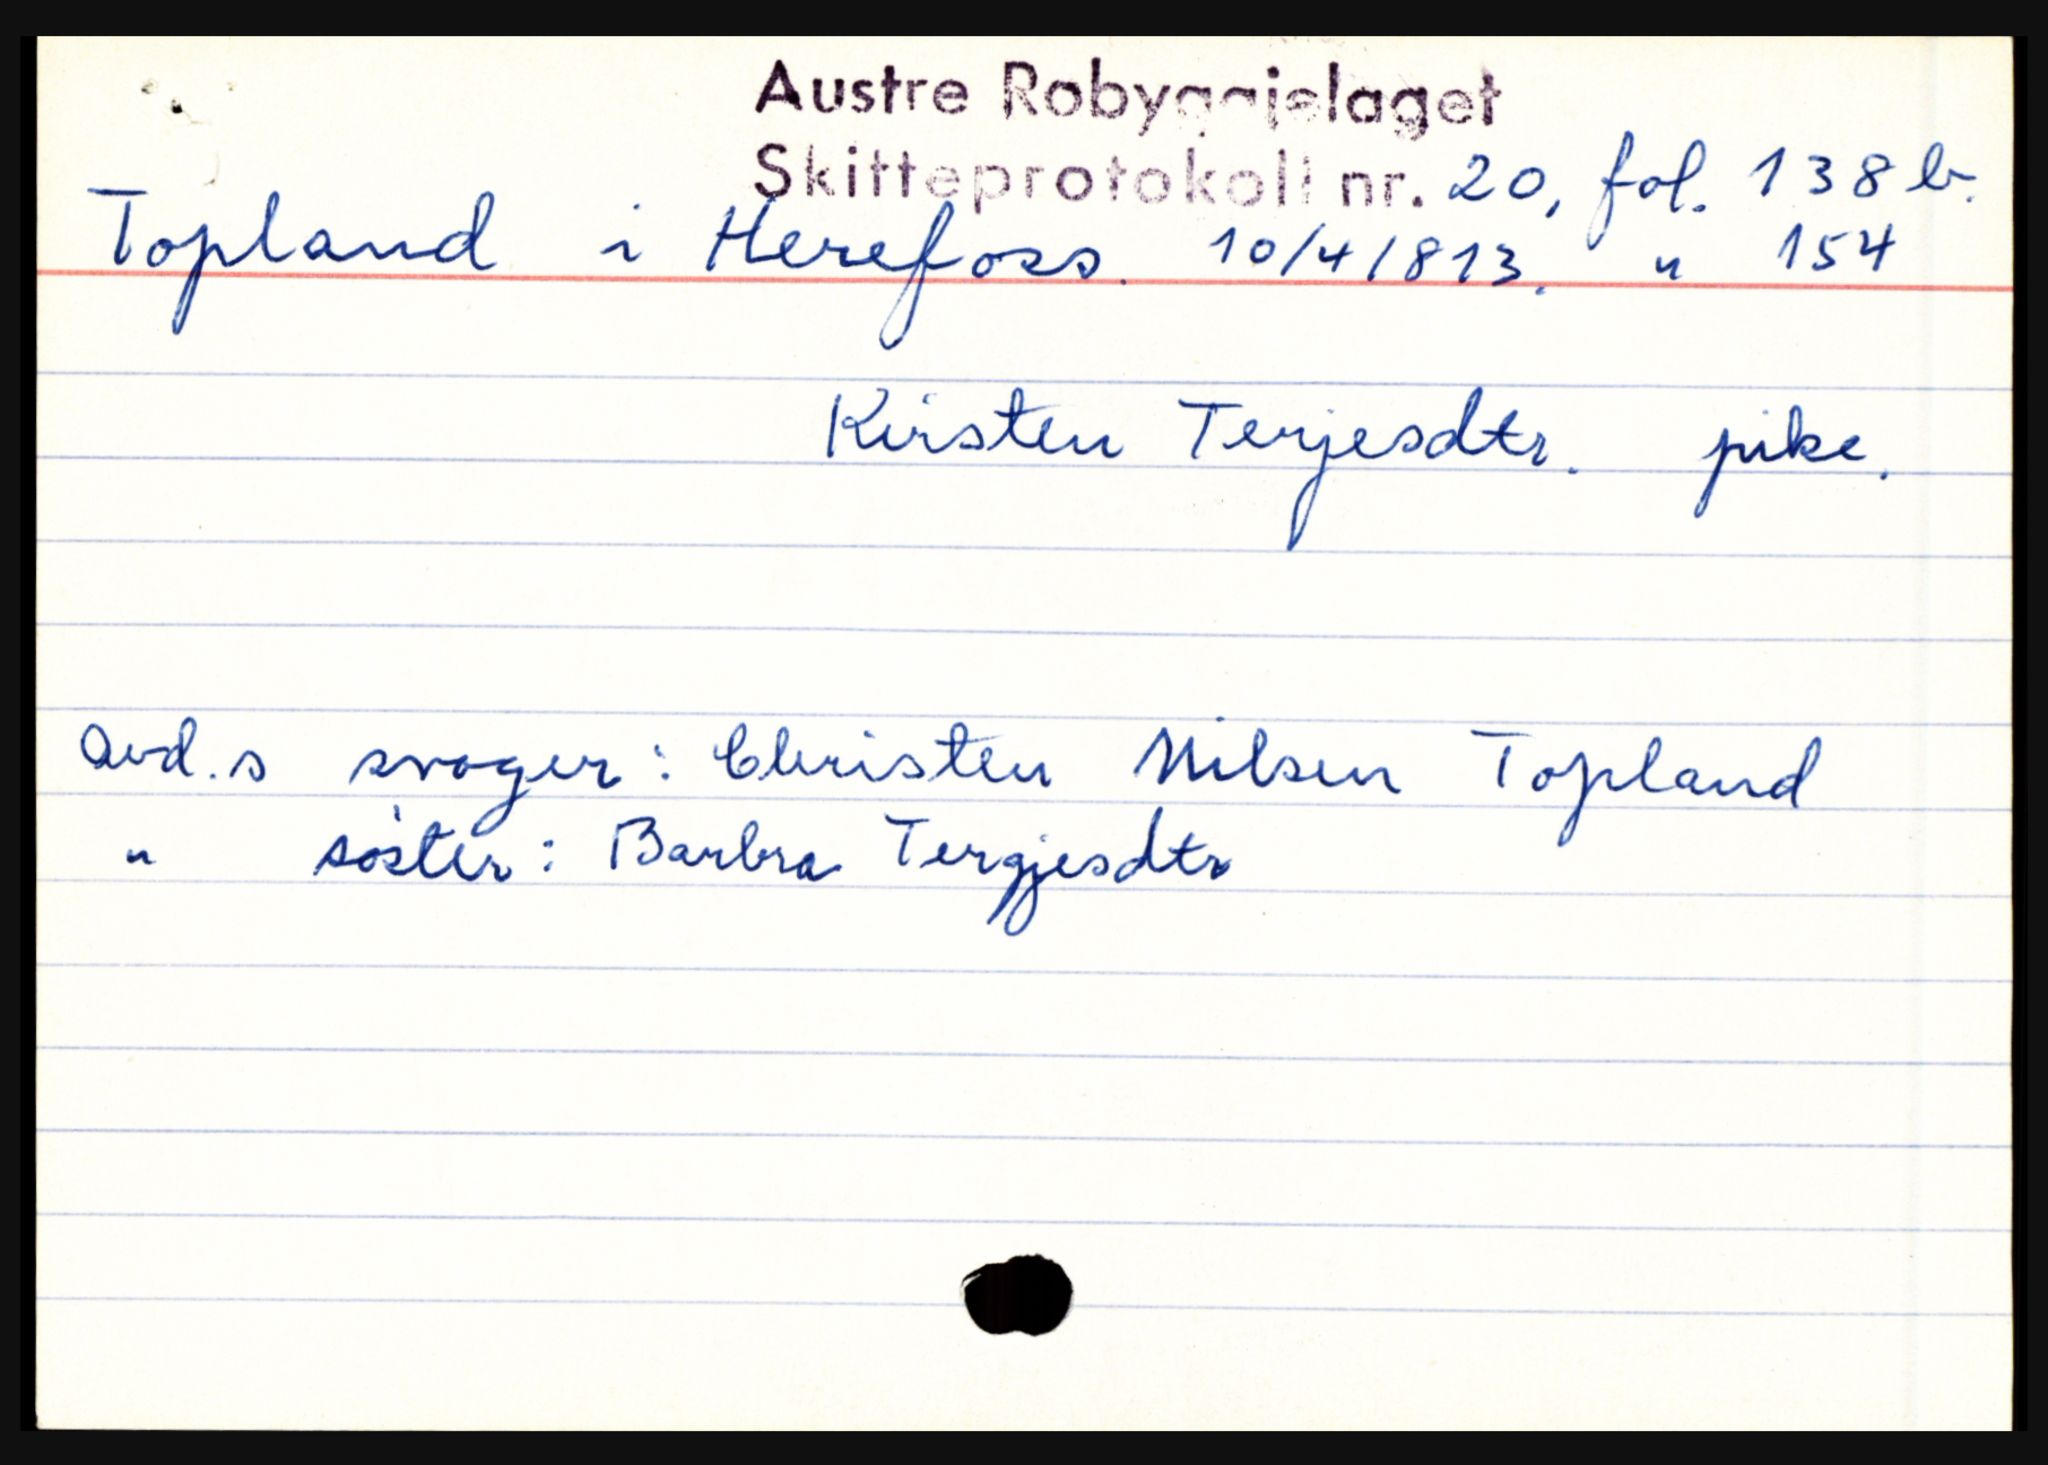 Austre Robyggjelaget
Skifteprotokoll nr. 20, fol. 138 b.
Topland i Herefoss. 10/4 1813. " 154
Kirsten Terjesdtr. pike.
Avd.s svoger: Christen Nilsen Topland
" søster: Barbra Tergjesdtr